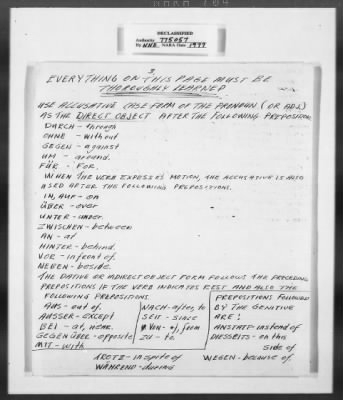 DECLASSIFIED
Authority 775057
By NND NARA Date 1977
3
EVERYTHING ON THIS PAGE MUST BE
THOROUGHLY LEARNED
USE ACCUSATIVE CASE FORM OF THE PRONOUN (OR ADJ)
AS THE DIRECT OBJECT AFTER THE FOLLOWING PREPOSITION
DURCH - through
OHNE - without
GEGEN - against
UM - around.
FÜR - FOR.
WHEN THE VERB EXPRESES MOTION, THE ACCUSATIVE IS ALSO
USED AFTER THE FOLLOWING PREPOSITIONS.
IN, AUF - on
ÜBER - over
UNTER - under.
ZWISCHEN - between
AN - at
HINTER - behind.
VOR - in front of.
NEBEN - beside.
THE DATIVE OR INDIRECT OBJECT FORM FOLLOWS THE PRECEDING
PREPOSITIONS IF THE VERB INDICATES REST AND ALSO THE
FOLLOWING PREPOSITIONS.
AUS - out of.
AUSSER - EXCEPT
BEI - at, near.
GEGENÜBER - opposite
MIT - with
NACH - after, to
SEIT - since
VON - of, from
ZU - to.
PREPOSITIONS FOLLOWED
BY THE GENITIVE
ARE!
ANSTATT - instead of
DIESSEITS - on this
side of
TROTZ - in spite of
WEGEN - because of.
WÄHREND - during